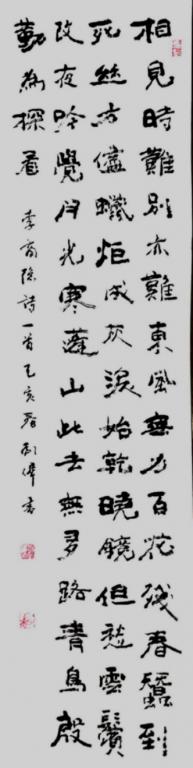 相見時難別亦難東風無力百花殘春蠶到
死絲方儘蠟炬成灰淚始乾曉鏡但愁雲鬢
改夜吟覺月光寒蓬山此去無多路青鳥殷
勤為探看 李商隱詩一首己亥春劉偉書